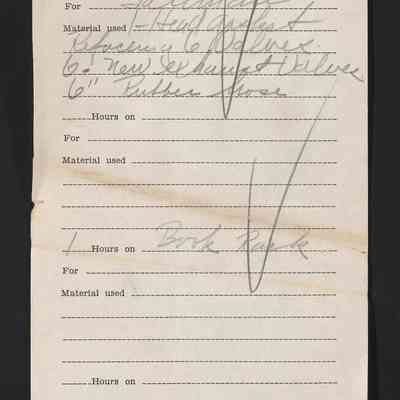 For
Material used 1- Head Gasket
Refacing 6 Valves
6- New Exhaust Valves
6" Rubber Hose
Hours on
For
Material used
1 Hours on Book Rack
For
Material used
Hours on